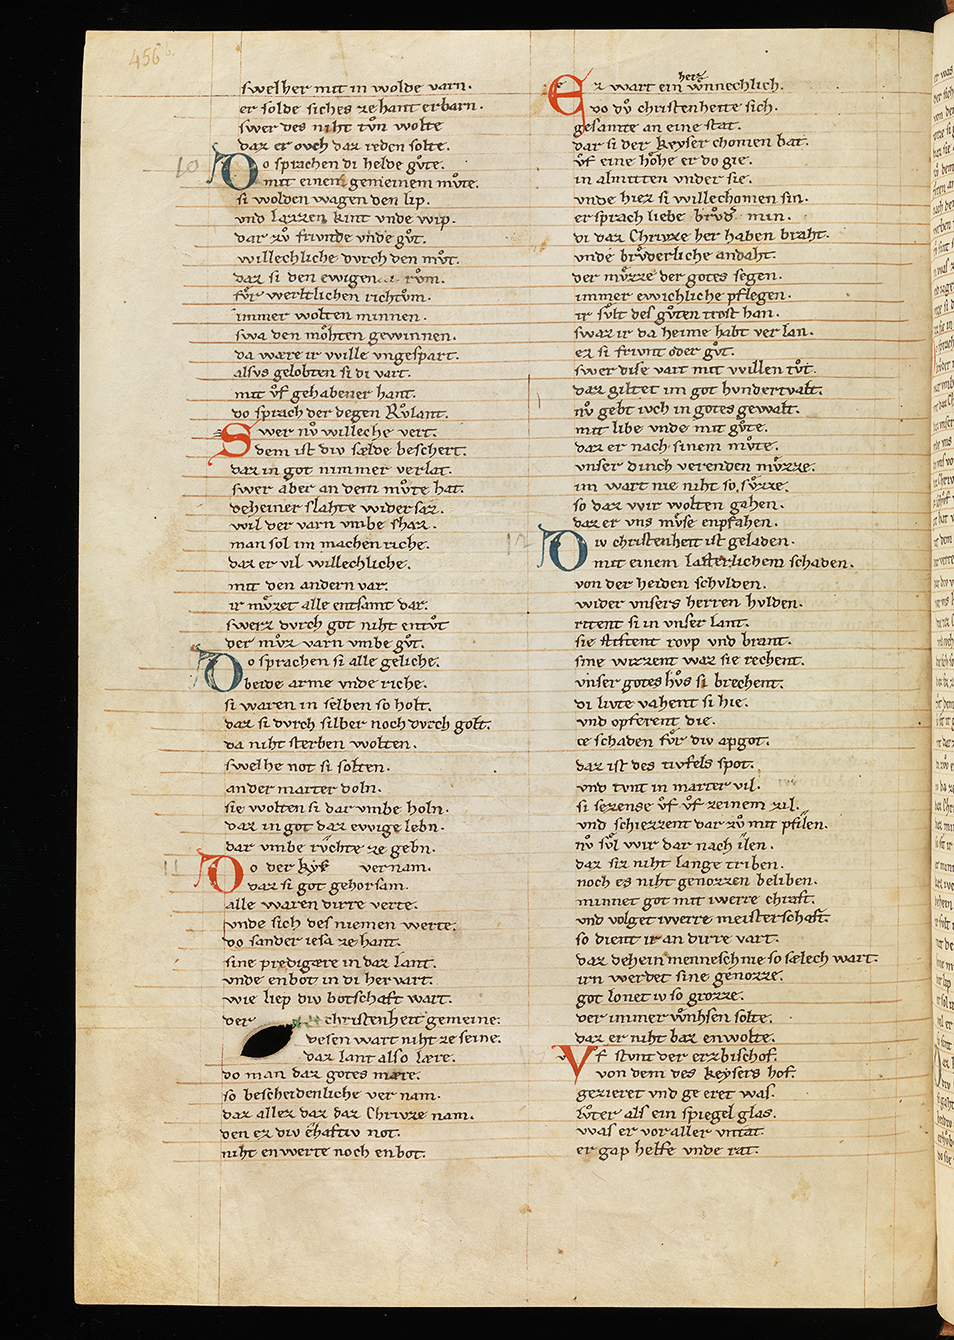 456
swelher mit in wolde varn.
er solde siches ze hant erbarn.
swer des niht tuͦn wolte
daz er ovch daz reden solte.
10
Do sprachen di helde guͦte.
mit einem gemeinem muͦte.
si wolden wagen den lip.
vnd lazzen kint vnde wip.
dar zuͦ friunde vnde guͦt.
willechliche durch den muͦt.
daz si den ewigen ruͦm.
fuͦr werltlichen richtuͦm.
immer wolten minnen.
swa den moͤhten gewinnen.
da wære ir wille vngespart.
alsus gelobten si di vart.
mit uͦf gehabener hant.
do sprach der degen Ruͦlant.
Swer nuͦ willeche vert.
dem ist div sælde beschert.
daz in got nimmer verlat.
swer aber an dem muͦte hat.
deheiner slahte widersaz.
wil der varn vmbe shaz.
man sol im machen riche.
daz er vil willechliche.
mit den andern var.
ir muͦzet alle entsamt dar.
swerz durch got niht entuͦt
der muͦz varn vmbe guͦt.
Do sprachen si alle geliche.
beide arme vnde riche.
si waren in selben so holt.
daz si durch silber noch durch golt.
da niht sterben wolten.
swelhe not si solten.
ander marter doln.
sie wolten si dar vmbe holn.
daz in got daz ewige lebn.
dar vmbe ruͤchte ze gebn.
11
Do der kyͤs vernam.
daz si got gehorsam.
alle waren dirre verte.
vnde sich des niemen werte.
do sander iesa ze hant.
sine predigære in daz lant.
vnde enbot in di hervart.
wie liep div botschaft wart.
der christenheit gemeine.
desen wart niht ze seine.
daz lant also lære.
do man daz gotes mære.
so bescheidenliche vernam.
daz allez daz daz Chriuze nam.
den ez div ehaftiv not.
niht enwerte noch enbot.
Ez wart ein herz wnnechlich.
do duͦ christenheite sich.
gesamte an eine stat.
dar si der keyser chomen bat.
uͦf eine hoͤhe er do gie.
in almitten vnder sie.
vnde hiez si willechomen sin.
er sprach liebe bruͦd' min.
di daz Chriuze her haben braht.
vnde bruͦderliche andaht.
der muͦzze der gotes segen.
immer ewichliche pflegen.
ir suͦlt des guͦten trost han.
swaz ir da heime habt verlan.
ez si friunt oder guͦt.
swer dise vart mit willen tuͦt.
daz giltet im got hundertvalt.
nuͦ gebt iuch in gotes gewalt.
mit libe vnde mit guͦte.
daz er nach sinem muͦte.
vnser dinch verenden muͦzze.
im wart nie niht so suͦzze.
so daz wir wolten gahen.
daz er vns muͦse enpfahen.
12
Div christenheit ist geladen.
mit einem lasterlichem schaden.
von der heiden schulden.
wider vnsers herren hulden.
ritent si in vnser lant.
sie stiftent roup vnd brant.
sine wizzent waz sie rechent.
vnser gotes huͦs si brechent.
di livte vahent si hie.
vnd opferent die.
ce schaden fuͦr div apgot.
daz ist des tiufels spot.
vnd tvnt in marter vil.
si sezense uͦf uͦf zeinem zil.
vnd schiezzent dar zuͦ mit pfilen.
nuͦ suͦl wir dar nach ilen.
daz siz niht lange triben.
noch es niht genozzen beliben.
minnet got mit iwerre chraft.
vnd volget iwerre meisterschaft.
so dient ir an dirre vart.
daz dehein mennesch nie so sælech wart.
irn werdet sine genozze.
got lonet iv so grozze.
der immer wͦnhsen solte.
daz er niht baz enwolte.
Vf stvnt der erzbischof.
von dem des keysers hof.
gezieret vnd ge eret was.
luͦter als ein spiegel glas.
was er vor aller vntat.
er gap helfe vnde rat.